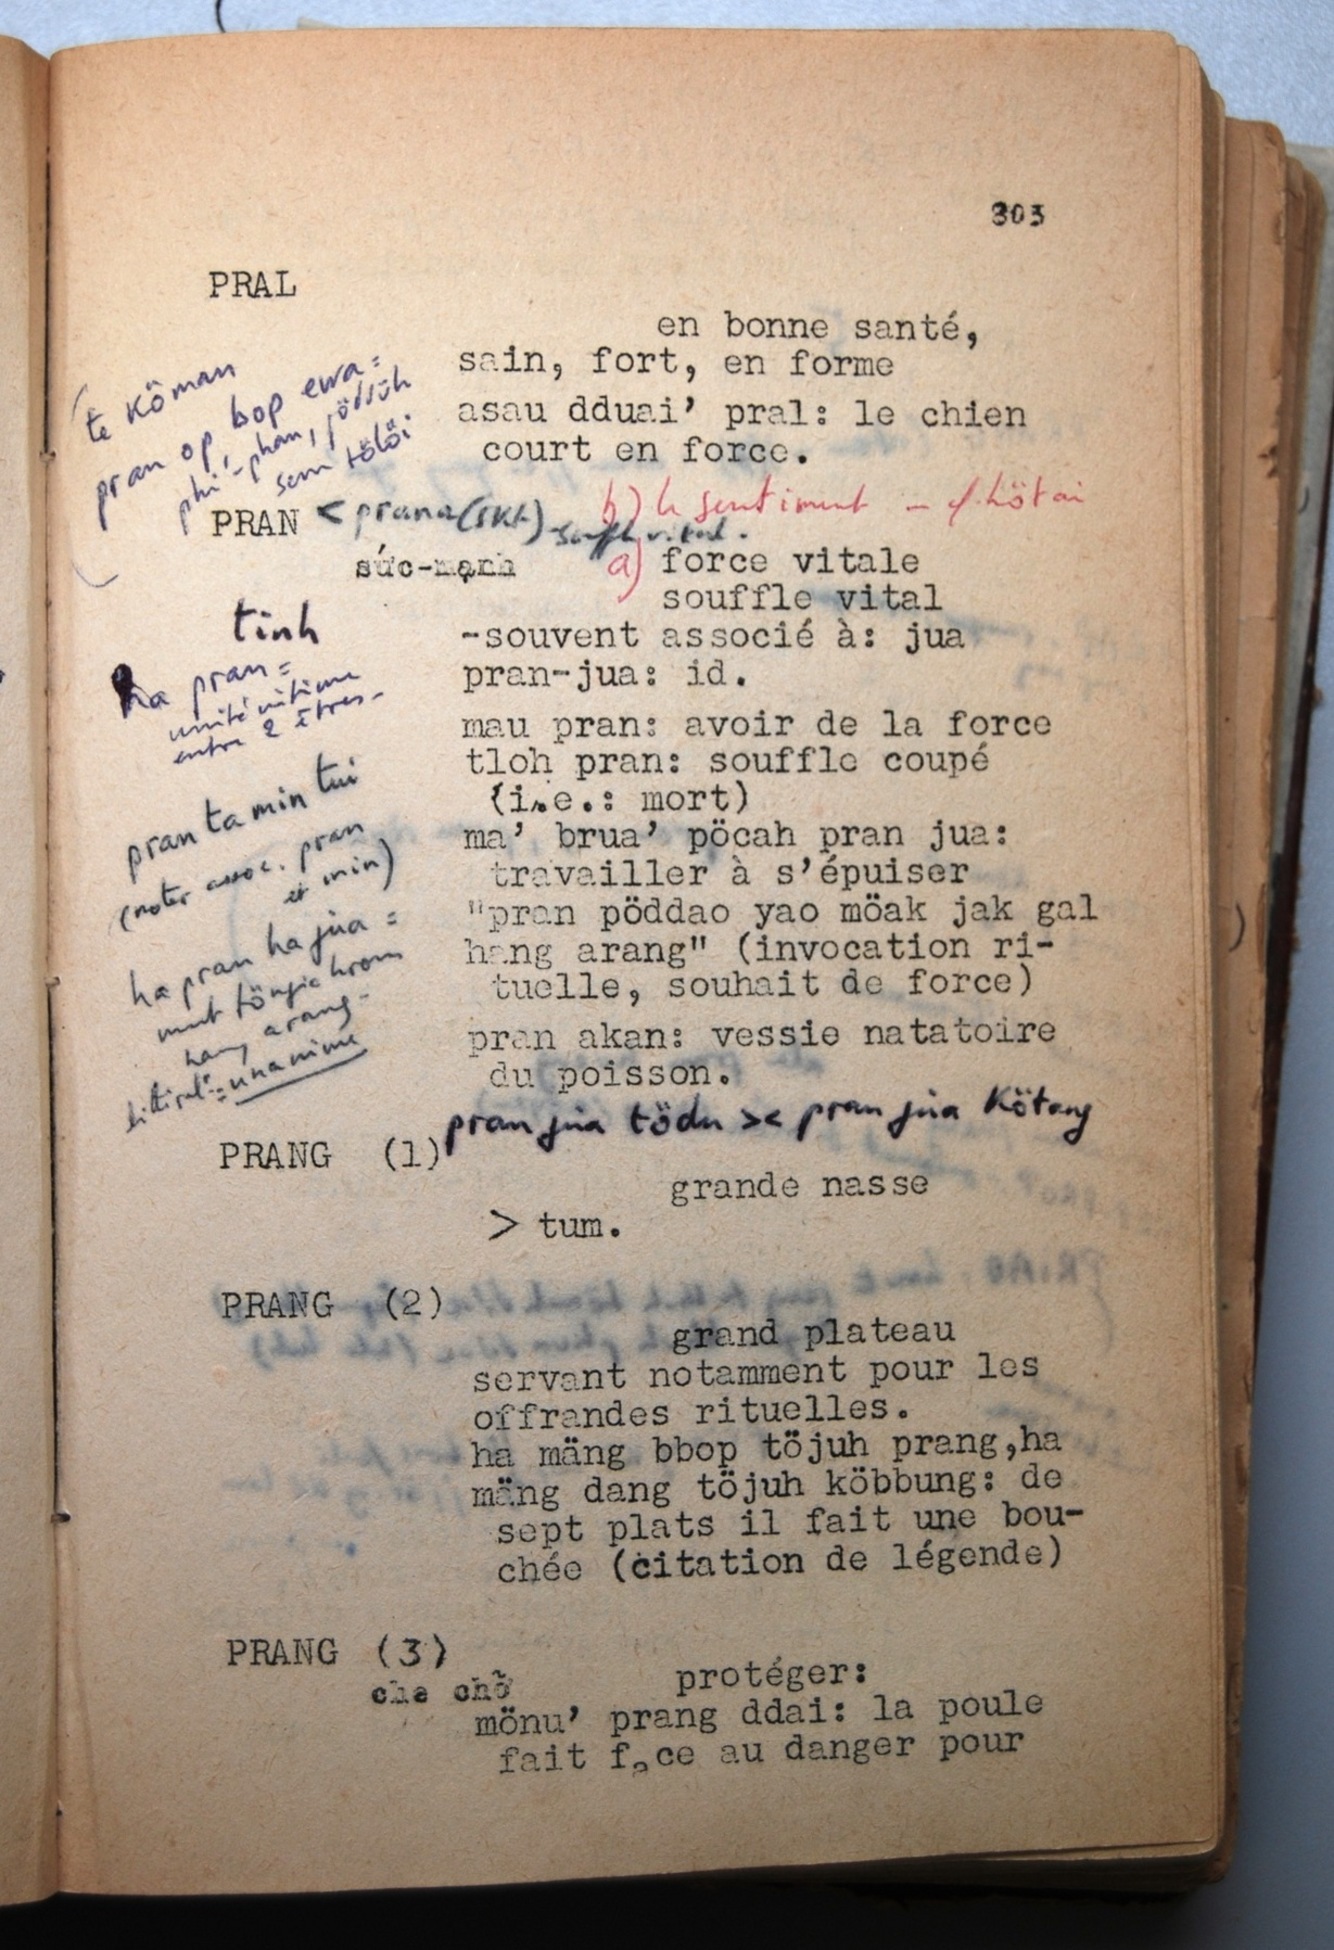 303
PRAL
en bonne santé,
sain, fort, en forme
asau dduai' pral: le chien
court en force.
te Köman
pran op, bop ewa =
phi-phan, pödduh
sem tölöi
PRAN < prana (skt) souffle vital.
b) le sentiment - cf. hötai
sức-mạnh
a) force vitale
souffle vital
tinh
-souvent associé à: jua
pran-jua: id.
ha pran =
unité intime
entre 2 êtres -
mau pran: avoir de la force
tloh pran: souffle coupé
(i.e.: mort)
ma' brua' pöcah pran jua:
travailler à s'épuiser
pran ta min tui
(noter assoc. pran
et min)
"pran pöddao yao möak jak gal
hang arang" (invocation ri-
tuelle, souhait de force)
ha pran ha jua =
hrom
hang arang -
littéral: = unanime
pran akan: vessie natatoire
du poisson.
pran jua tödu >< pran jua Kötang
PRANG (1)
grande nasse
> tum.
PRANG (2)
grand plateau
servant notamment pour les
offrandes rituelles.
ha mäng bbop töjuh prang,ha
mäng dang töjuh köbbung: de
sept plats il fait une bou-
chée (citation de légende)
PRANG (3)
che chở
protéger:
mönu' prang ddai: la poule
fait face au danger pour